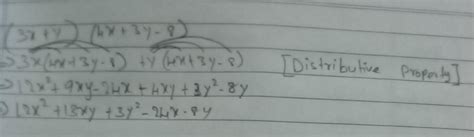 (3x+y) (4x+3y-8)
⇒ 3x(4x+3y-8) +y(4x+3y-8) [Distributive Property]
⇒ 12x²+9xy-24x+4xy+3y²-8y
⇒ 12x²+13xy+3y²-24x-8y